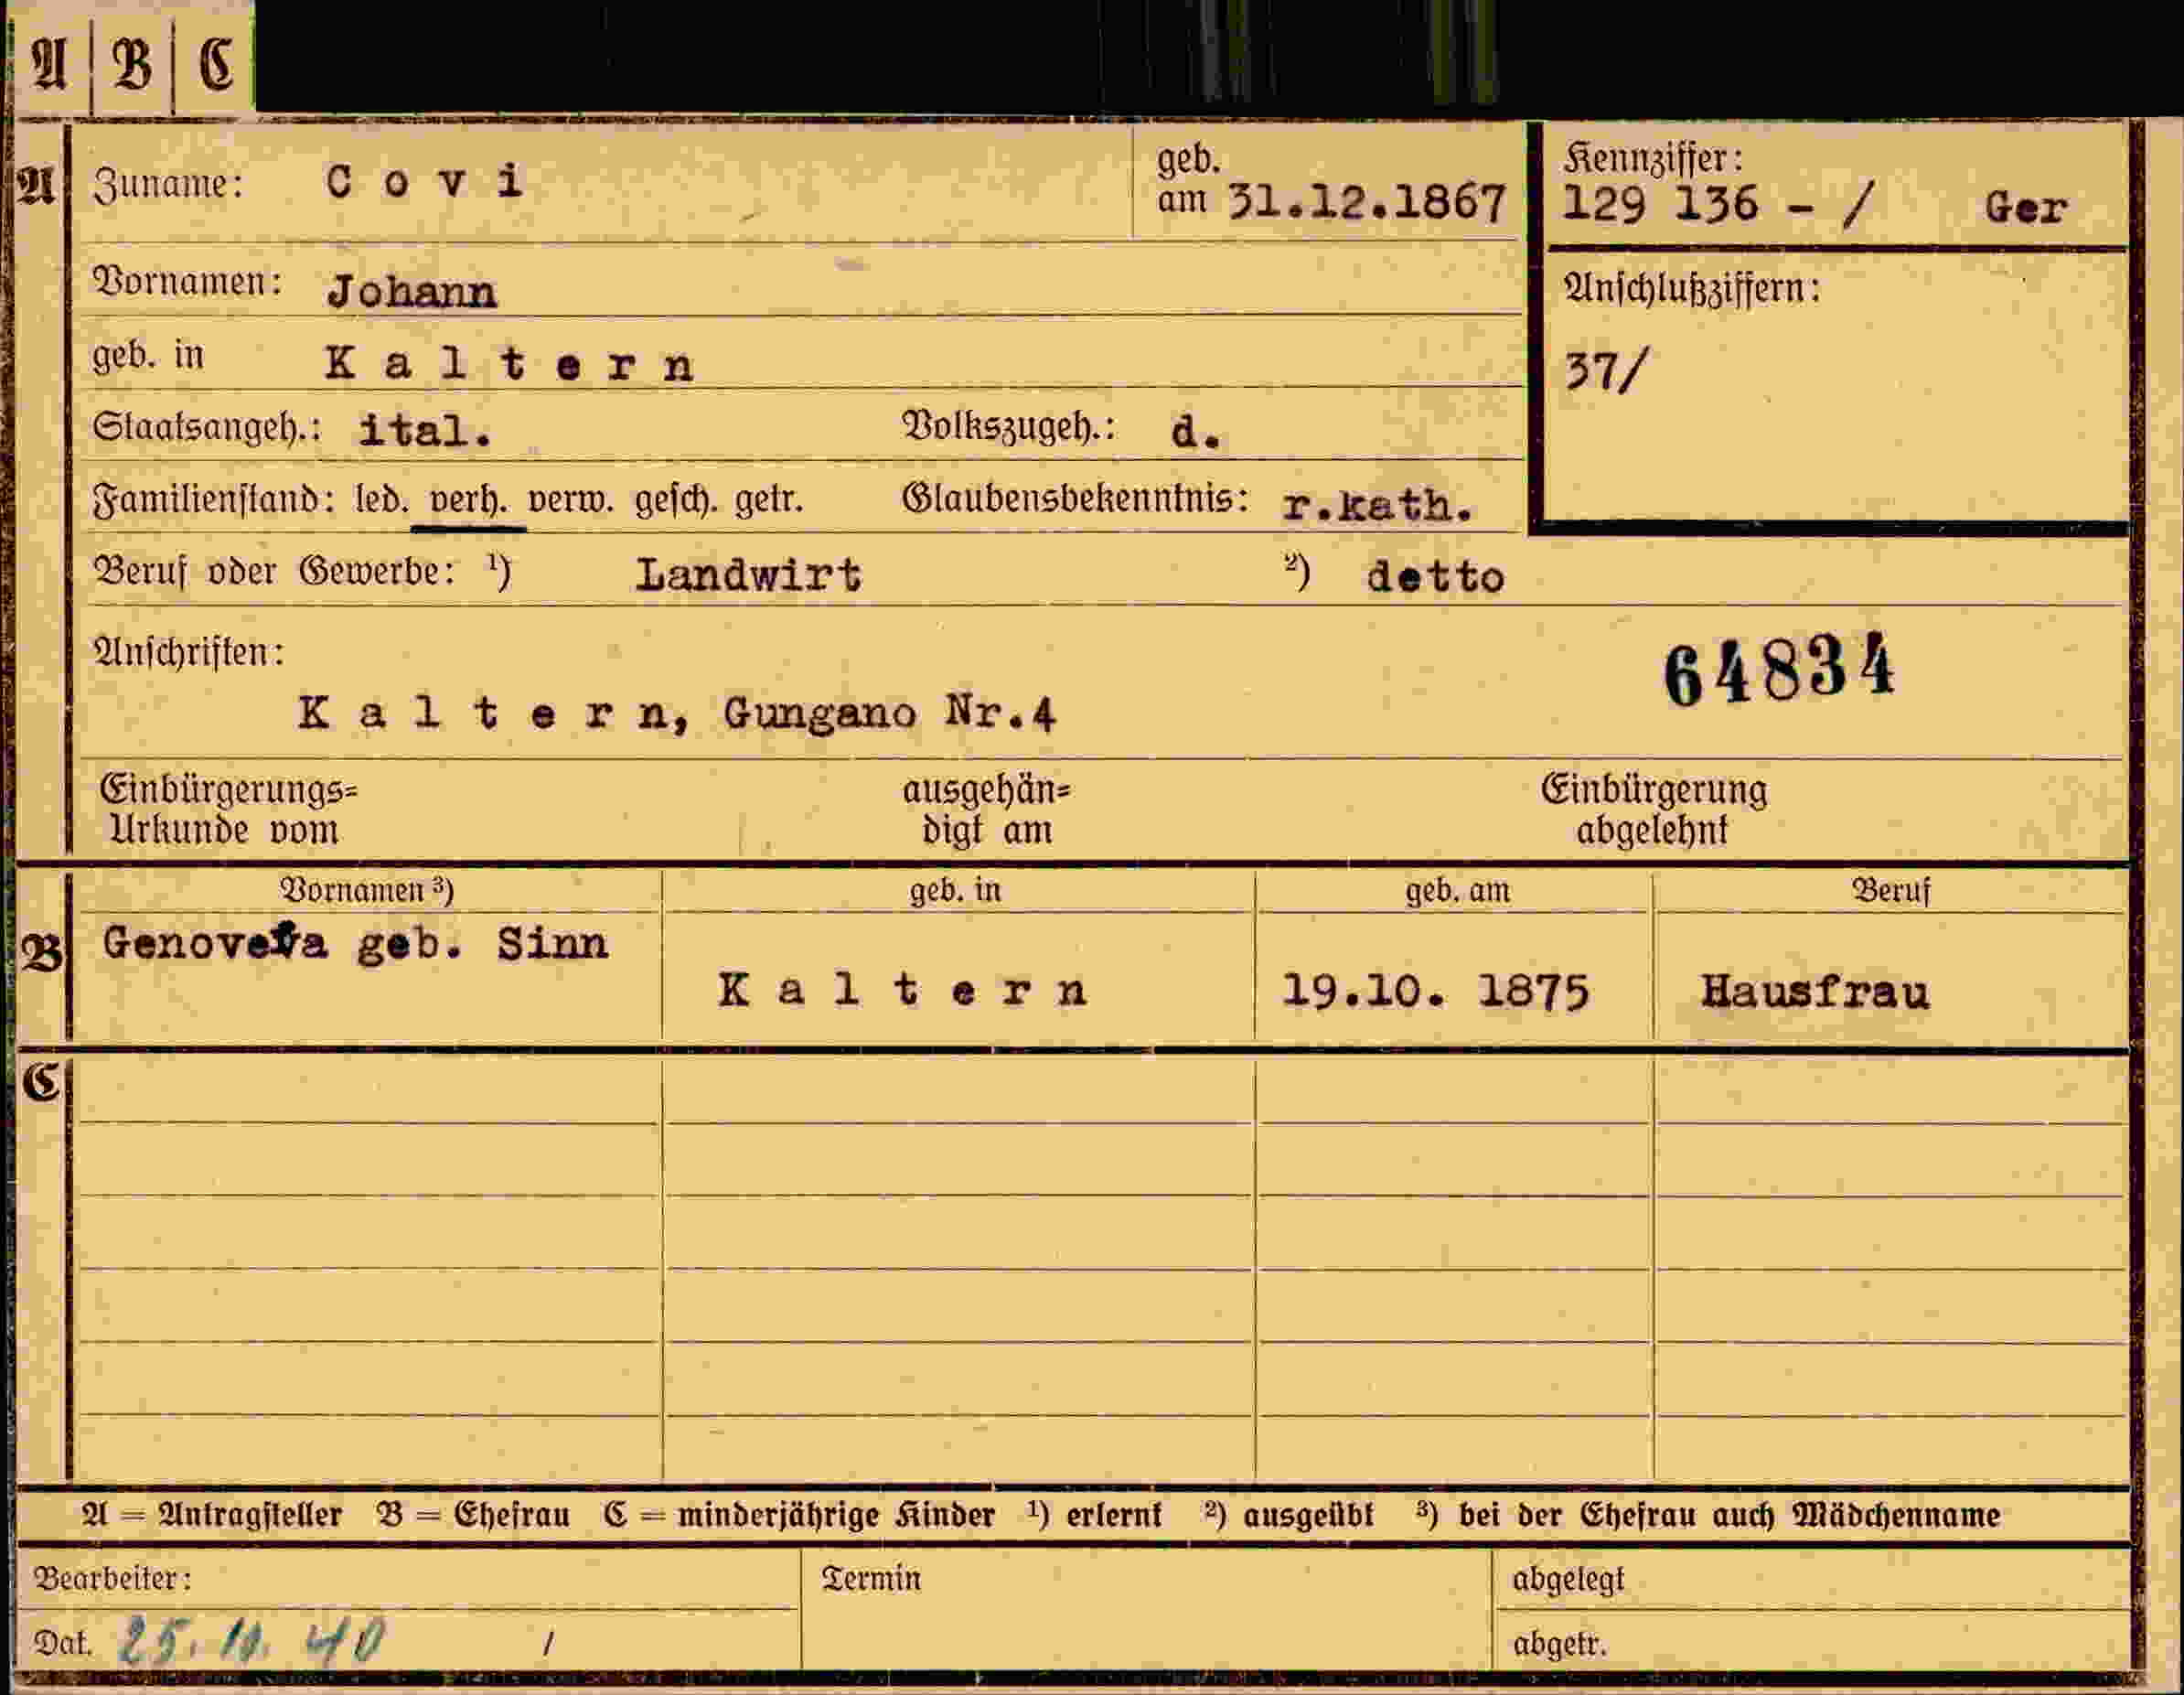 A | B | C
A Zuname: Covi geb. am 31.12.1867 Kennziffer: 129 136 - / Ger
Vornamen: Johann Anschlußziffern:
geb. in Kaltern 37/
Staatsangeh.: ital. Volkszugeh.: d.
Familienstand: led. verh. verw. gesch. getr. Glaubensbekenntnis: r.kath.
Beruf oder Gewerbe: ¹) Landwirt ²) detto
Anschriften: 64834
Kaltern, Gungano Nr.4
Einbürgerungs= ausgehän= Einbürgerung
Urkunde vom digt am abgelehnt
Vornamen ³) geb. in geb. am Beruf
B Genoveva geb. Sinn
Kaltern 19.10. 1875 Hausfrau
C
A = Antragsteller B = Ehefrau C = minderjährige Kinder ¹) erlernt ²) ausgeübt ³) bei der Ehefrau auch Mädchenname
Bearbeiter: Termin abgelegt
Dat. 25.10.40 / abgetr.